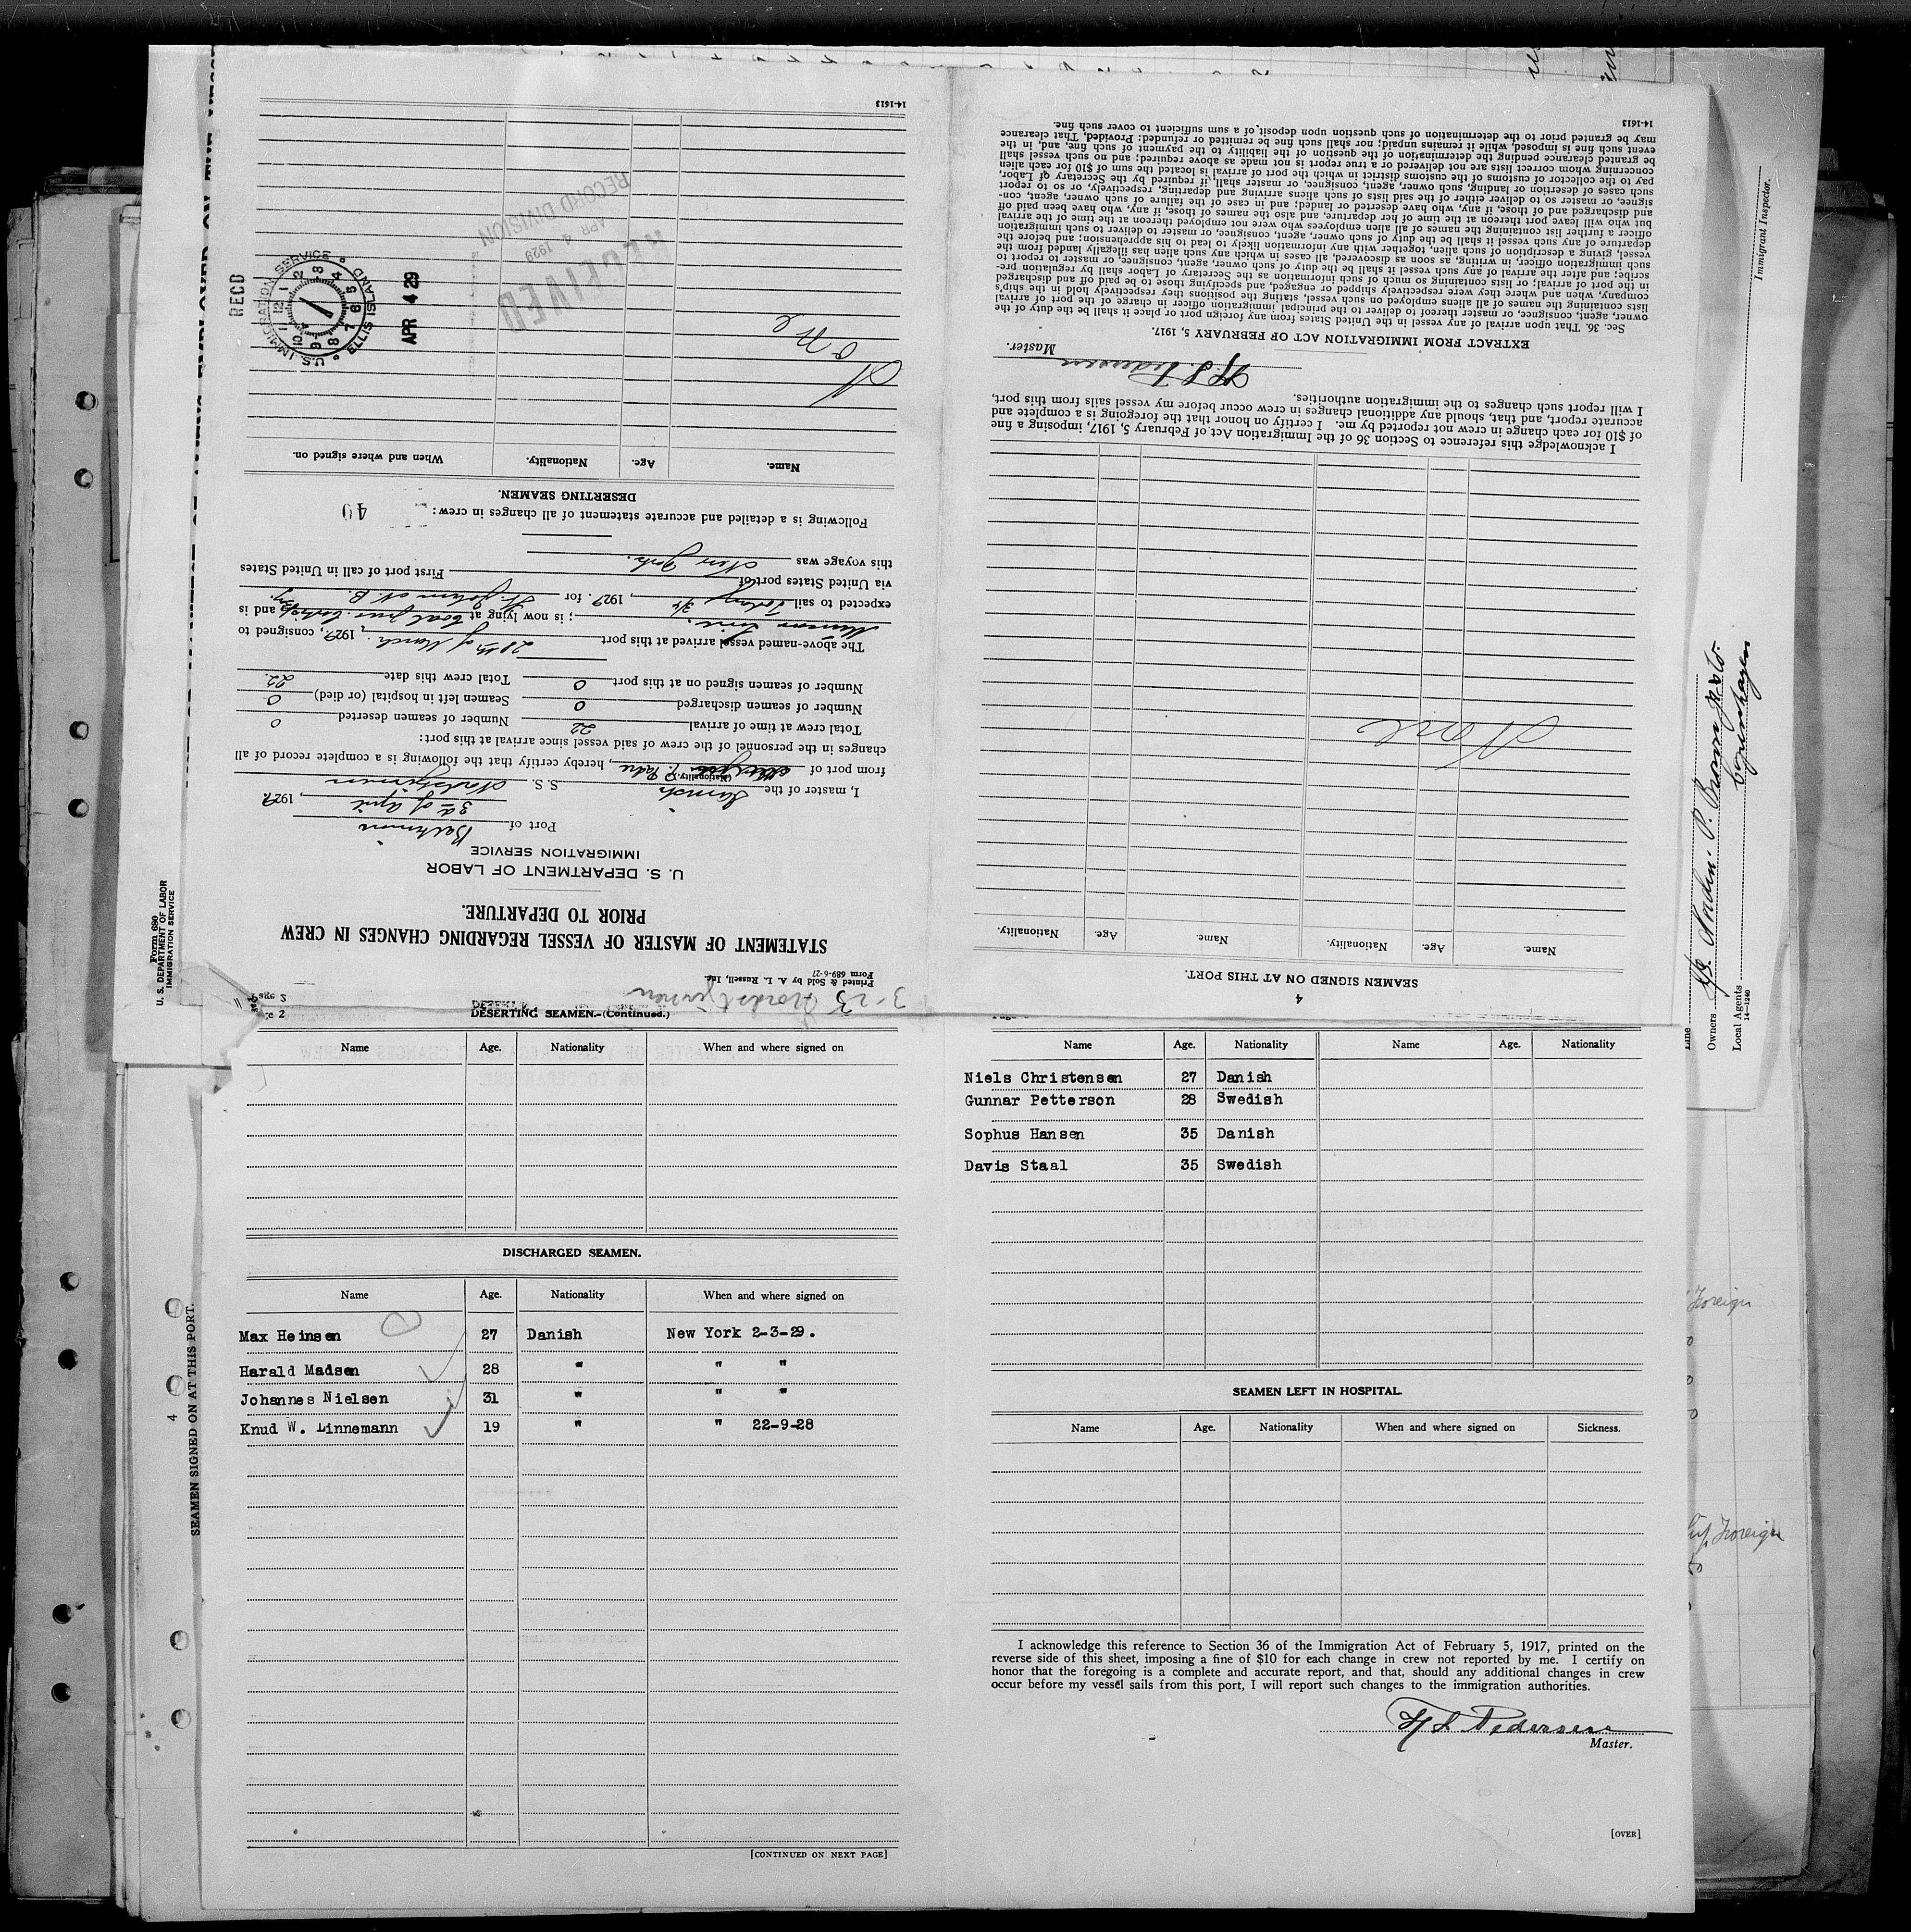 STATEMENT OF MASTER OF VESSEL REGARDING CHANGES IN CREW
PRIOR TO DEPARTURE.
Printed & Sold by A. L. Russell, Inc.
Form 689-6-27
3-23 Nordstjernen
U. S. DEPARTMENT OF LABOR
IMMIGRATION SERVICE
Port of Baltimore
3rd of April, 1929.
I, master of the Danish S.S. Nordstjernen
(Nationality.)
from port of, hereby certify that the following is a complete record of all
changes in the personnel of the crew of said vessel since arrival at this port:
Total crew at time of arrival 22 Number of seamen deserted 0
Number of seamen discharged 0 Seamen left in hospital (or died) 0
Number of seamen signed on at this port 0 Total crew this date 22.
The above-named vessel arrived at this port 28th of March, 1929, consigned to
Munson Line.; is now lying at Coal pier and is
expected to sail Today 3/4, 1929. for St. John N. B.
via United States port of First port of call in United States
this voyage was New York.
Following is a detailed and accurate statement of all changes in crew: 40
DESERTING SEAMEN.
Name. Age. Nationality. When and where signed on.
None
RECEIVED
APR 4 1929
RECORD DIVISION
RECD
U.S. IMMIGRATION SERVICE ELLIS ISLAND
APR 4 29
14-1613
4
SEAMEN SIGNED ON AT THIS PORT.
Name. Age. Nationality. Name. Age. Nationality.
None
I acknowledge this reference to Section 36 of the Immigration Act of February 5, 1917, imposing a fine
of $10 for each change in crew not reported by me. I certify on honor that the foregoing is a complete and
accurate report, and that, should any additional changes in crew occur before my vessel sails from this port,
I will report such changes to the immigration authorities.
H S Pedersen
Master.
EXTRACT FROM IMMIGRATION ACT OF FEBRUARY 5, 1917.
Sec. 36. That upon arrival of any vessel in the United States from any foreign port or place it shall be the duty of the
owner, agent, consignee, or master thereof to deliver to the principal immigration officer in charge of the port of arrival
lists containing the names of all aliens employed on such vessel, stating the positions they respectively hold in the ship's
company, when and where they were respectively shipped or engaged, and specifying those to be paid off and discharged
in the port of arrival; or lists containing so much of such information as the Secretary of Labor shall by regulation pre-
scribe; and after the arrival of any such vessel it shall be the duty of such owner, agent, consignee, or master to report to
such immigration officer, in writing, as soon as discovered, all cases in which any such alien has illegally landed from the
vessel, giving a description of such alien, together with any information likely to lead to his apprehension; and before the
departure of any such vessel it shall be the duty of such owner, agent, consignee, or master to deliver to such immigration
officer a further list containing the names of all alien employees who were not employed thereon at the time of the arrival
but who will leave port thereon at the time of her departure, and also the names of those, if any, who have been paid off
and discharged and of those, if any, who have deserted or landed; and in case of the failure of such owner, agent, con-
signee, or master so to deliver either of the said lists of such aliens arriving and departing, respectively, or so to report
such cases of desertion or landing, such owner, agent, consignee, or master shall, if required by the Secretary of Labor,
pay to the collector of customs of the customs district in which the port of arrival is located the sum of $10 for each alien
concerning whom correct lists are not delivered or a true report is not made as above required; and no such vessel shall
be granted clearance pending the determination of the question of the liability to the payment of such fine, and, in the
event such fine is imposed, while it remains unpaid; nor shall such fine be remitted or refunded: Provided, That clearance
may be granted prior to the determination of such question upon deposit of a sum sufficient to cover such fine.
14-1613
Page 2
DESERTING SEAMEN.-(Continued.)
Name Age. Nationality When and where signed on
DISCHARGED SEAMEN.
Name Age. Nationality When and where signed on
Max Heinsen 27 Danish New York 2-3-29.
Harald Madsen 28 " " "
Johannes Nielsen 31 " " "
Knud W. Linnemann 19 " " 22-9-28
[CONTINUED ON NEXT PAGE]
Name Age. Nationality Name Age. Nationality
Niels Christensen 27 Danish
Gunnar Petterson 28 Swedish
Sophus Hansen 35 Danish
Davis Staal 35 Swedish
SEAMEN LEFT IN HOSPITAL.
Name Age. Nationality When and where signed on Sickness.
I acknowledge this reference to Section 36 of the Immigration Act of February 5, 1917, printed on the
reverse side of this sheet, imposing a fine of $10 for each change in crew not reported by me. I certify on
honor that the foregoing is a complete and accurate report, and that, should any additional changes in crew
occur before my vessel sails from this port, I will report such changes to the immigration authorities.
H S Pedersen
Master.
[OVER]
Form 680
U. S. DEPARTMENT OF LABOR
IMMIGRATION SERVICE
4
SEAMEN SIGNED ON AT THIS PORT.
Immigrant Inspector.
Owners
Copenhagen
Local Agents
14-1240
Foreign
Foreign